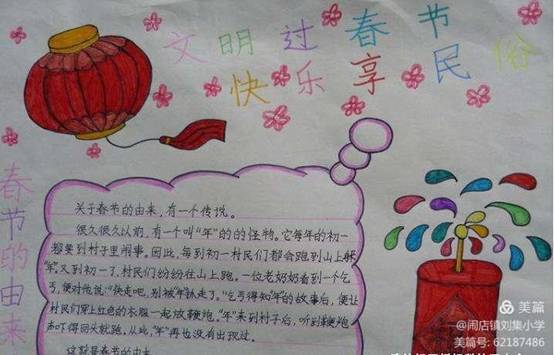 文明过春节
快乐享民俗
春节的由来
关于春节的由来，有一个传说。
很久很久以前，有一个叫“年”的的怪物。它每年的初一
都要到村子里闹事。因此，每到初一村民们都会跑到山上躲
年。又到初一了，村民们纷纷往山上跑。一位老奶奶看到一个乞
丐，便对他说：“快走吧，别被“年”抓走了。”乞丐得知“年”的故事后，便让
村民们穿上红色的衣服一起放鞭炮。“年”来到村子后，听到鞭炮
声吓得回头就跑，从此，“年”再也没有出现过。
这就是春节的由来
美篇
@闹店镇刘集小学
美篇号: 62187486